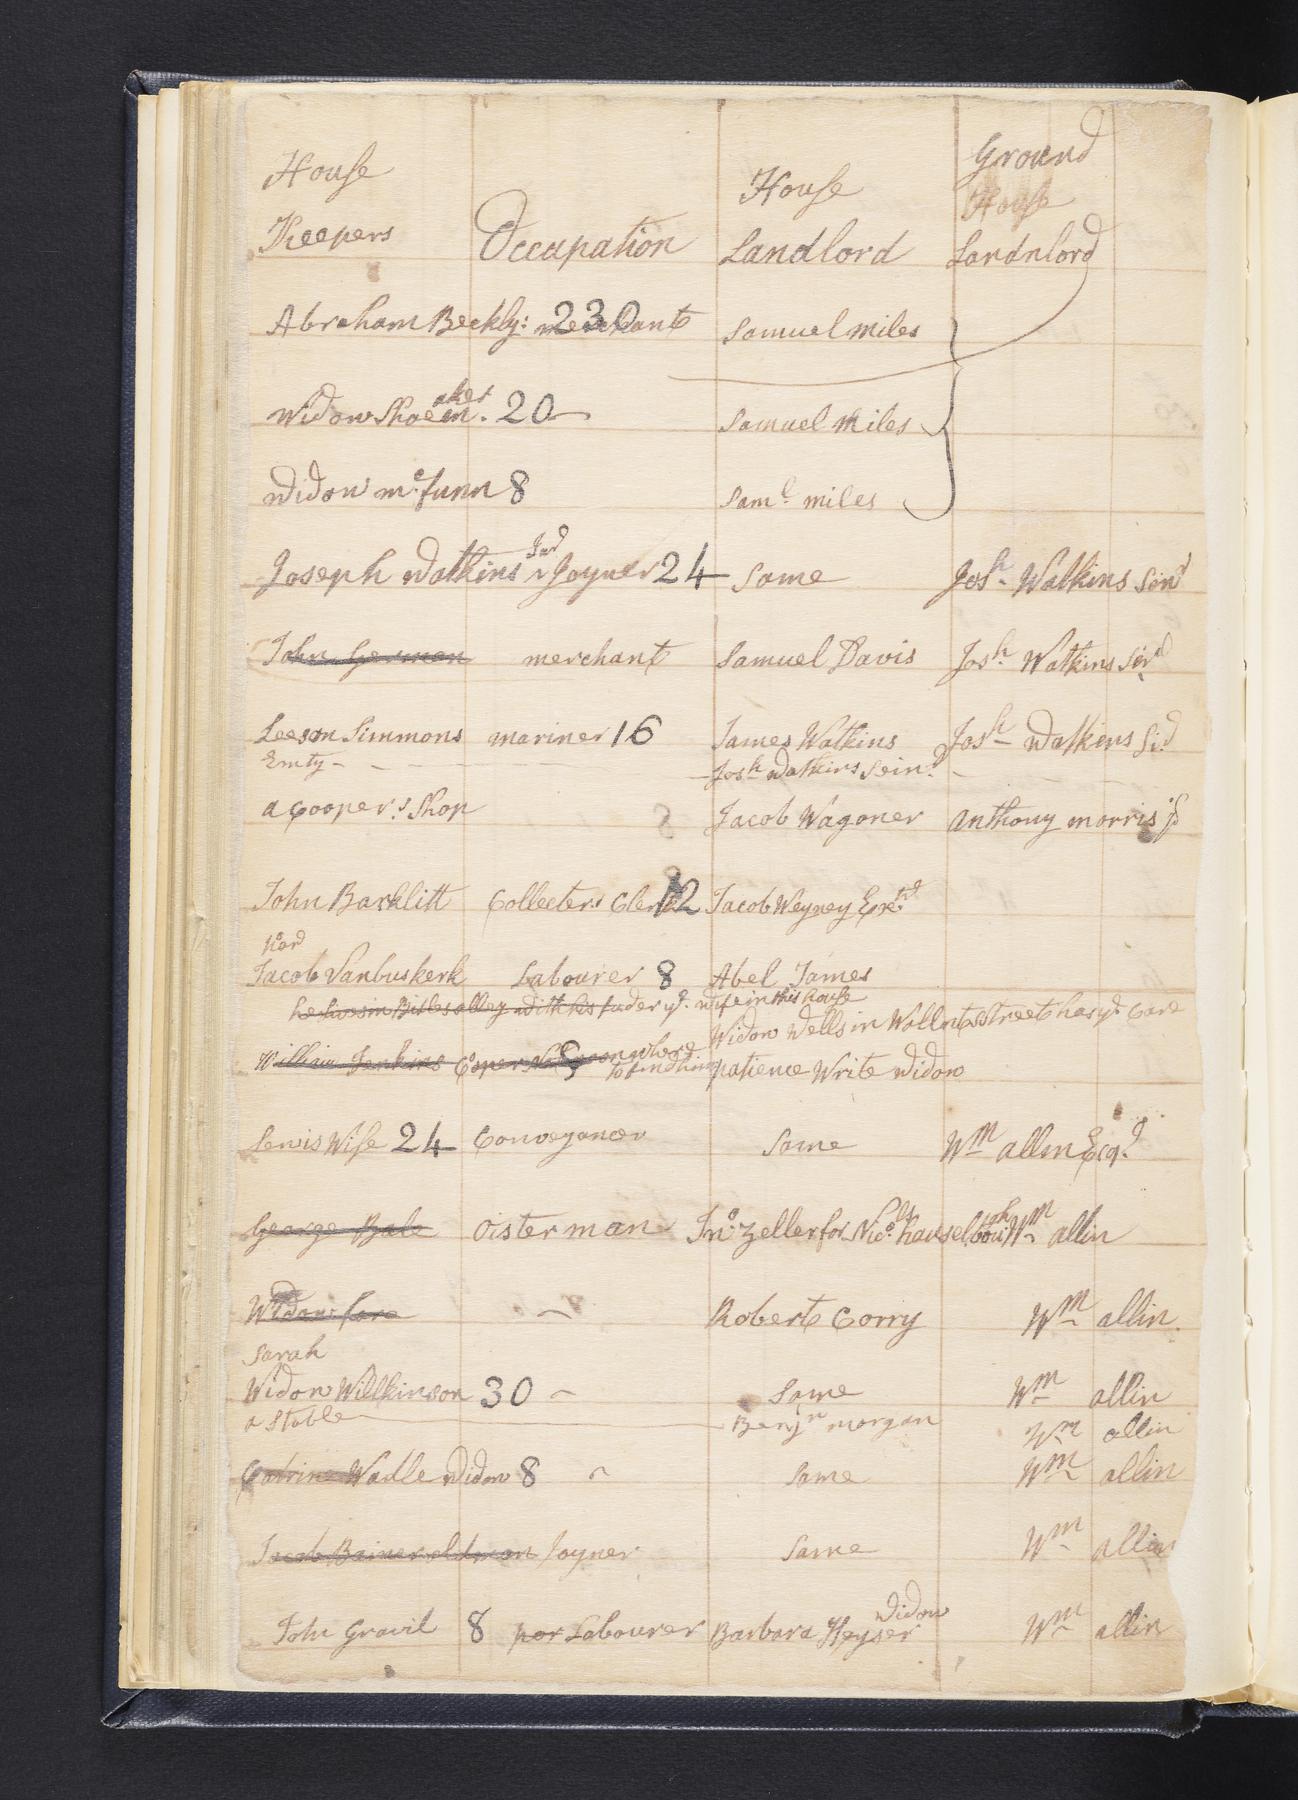 House Keepers Occupation House Landlord Ground House Landnlord
Abraham Beekly: merchant 230 Samuel miles
Widow Shoemaker. 20 Samuel Miles
Widow mc:funn 8 Saml. miles
Joseph Watkins Jur Joyner 24 Same Josh. Watkins Sinr
John German merchant Samuel Davis Josh. Watkins Sinr
Leeson Simmons mariner 16 James Watkins Josh Watkins Sir
Emty Josh Watkins Seinr
a Cooper.s Shop Jacob Wagoner Anthony morris Jr
John Barklitt Collecters Clerk 12 Jacob Weyney
Jacob Vanbuskerk Labourer 8 Abel James
he lives in Bibles alley with his fader yr. wife in this house
Widow Wells in Wallnts street has yr. Care
William Jenkins Coper No 8 on where to find him patience Write Widow
Lewis Wise 24 Conveyancer Same Wm allin Esqr
George Bale Oister man Jno: Zeller for Nico.ls Wm allin
Widow Robert Corry Wm allin.
Sarah
Widow Willkinson 30 Same Wm allin
a Stable Benjn morgan Wm allin
Catrine Wadle Widow 8 Same Wm allin
Jacob Joyner Same Wm allin
John Gravil 8 por Labourer Barbara Heyser Widow Wm allin